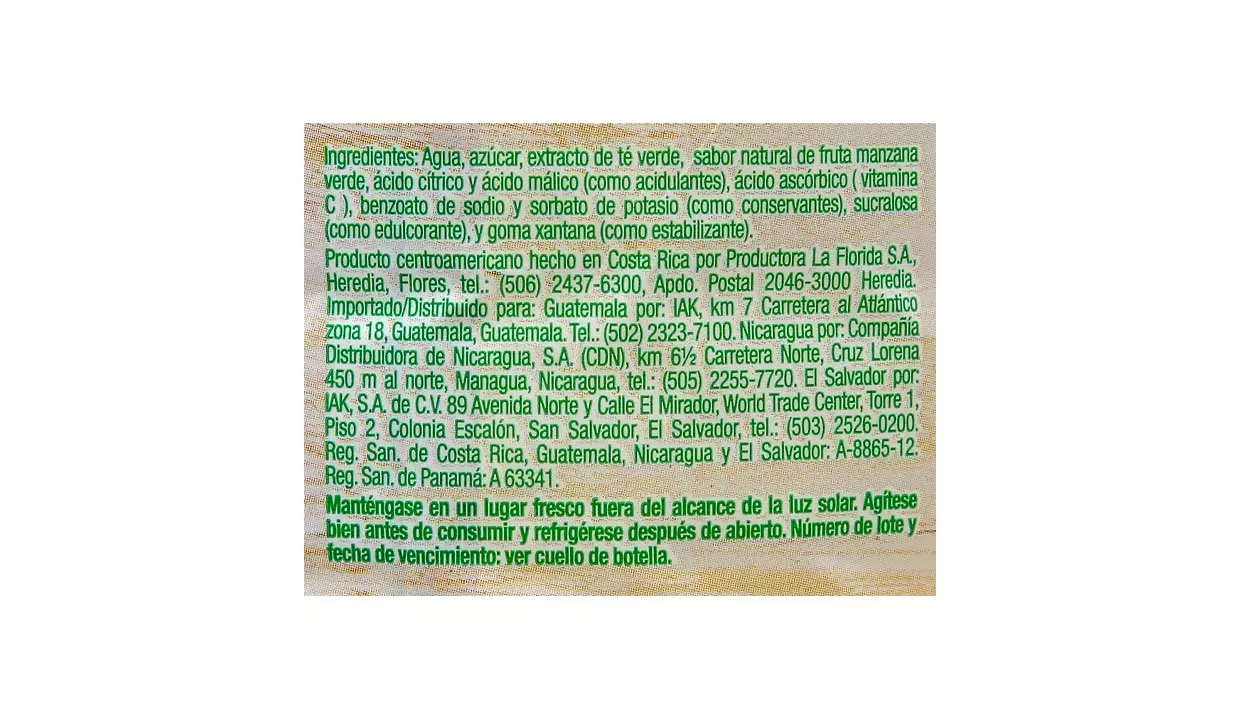 Ingredientes: Agua, azúcar, extracto de té verde, sabor natural de fruta manzana
verde, ácido cítrico y ácido málico (como acidulantes), ácido ascórbico ( vitamina
C ), benzoato de sodio y sorbato de potasio (como conservantes), sucralosa
(como edulcorante), y goma xantana (como estabilizante).
Producto centroamericano hecho en Costa Rica por Productora La Florida S.A.,
Heredia, Flores, tel.: (506) 2437-6300, Apdo. Postal 2046-3000 Heredia.
Importado/Distribuido para: Guatemala por: IAK, km 7 Carretera al Atlántico
zona 18, Guatemala, Guatemala. Tel.: (502) 2323-7100. Nicaragua por: Compañía
Distribuidora de Nicaragua, S.A. (CDN), km 6½ Carretera Norte, Cruz Lorena
450 m al norte, Managua, Nicaragua, tel.: (505) 2255-7720. El Salvador por:
IAK, S.A. de C.V. 89 Avenida Norte y Calle El Mirador, World Trade Center, Torre 1,
Piso 2, Colonia Escalón, San Salvador, El Salvador, tel.: (503) 2526-0200.
Reg. San. de Costa Rica, Guatemala, Nicaragua y El Salvador: A-8865-12.
Reg. San. de Panamá: A 63341.
Manténgase en un lugar fresco fuera del alcance de la luz solar. Agítese
bien antes de consumir y refrigérese después de abierto. Número de lote y
fecha de vencimiento: ver cuello de botella.